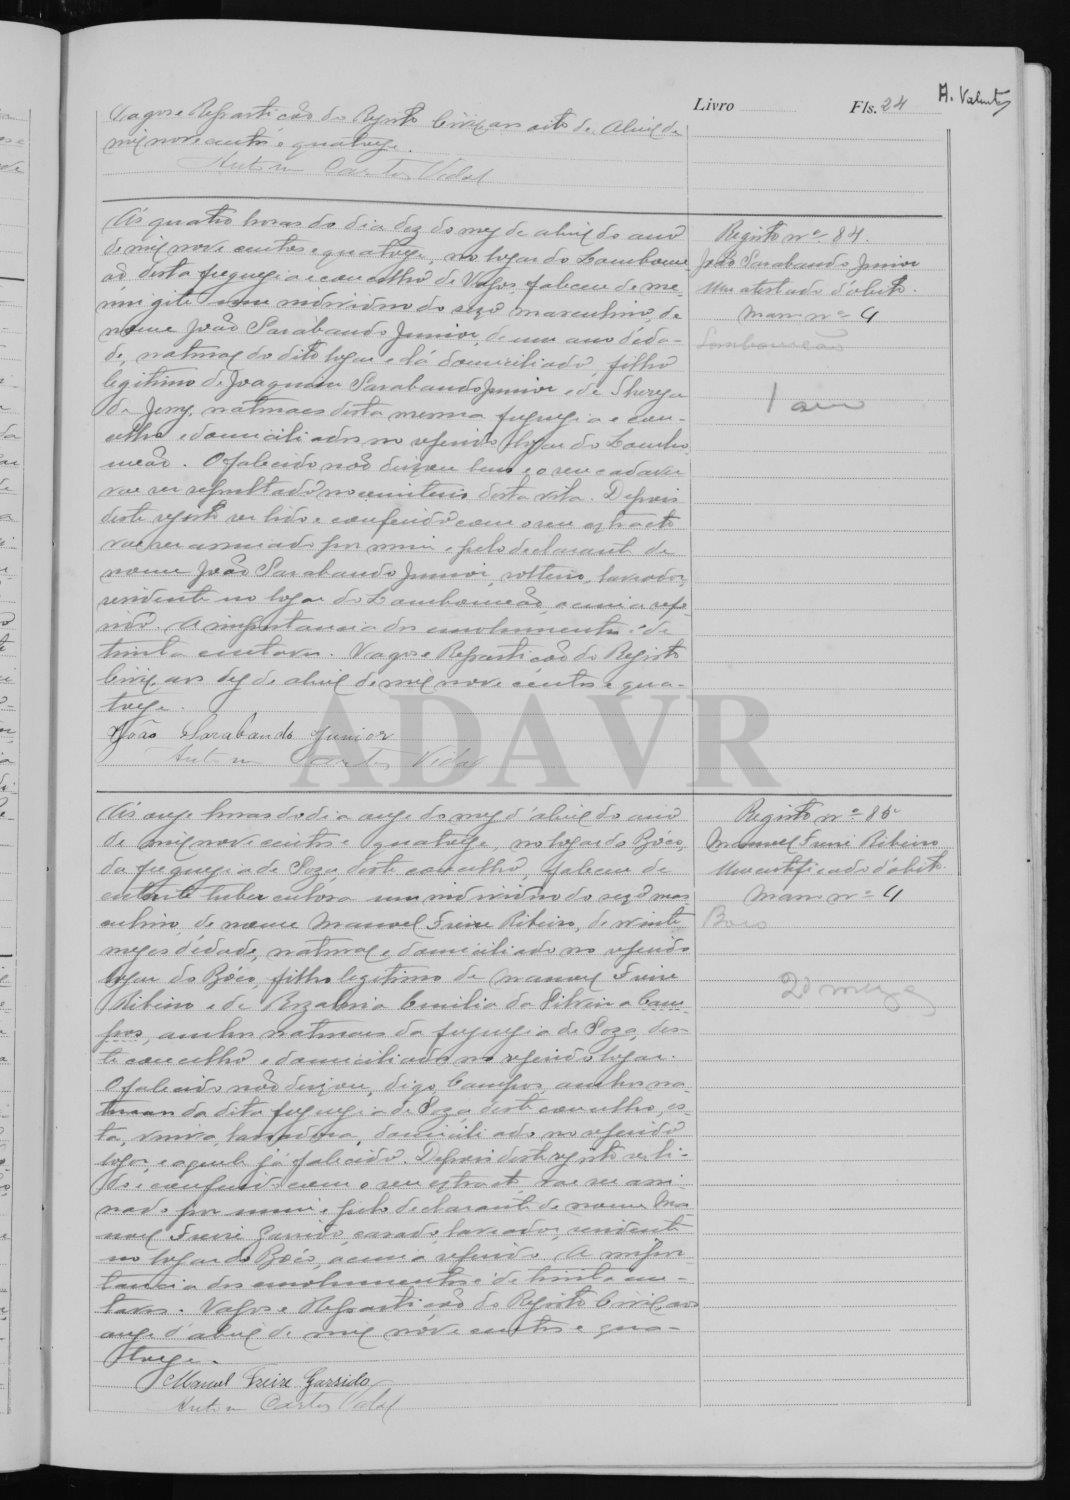 Livro
Fls. 24
A. Valente
Vagos e Repartição do Registo Civil, aos oito de Abril de
mil nove centos e quatorze.
Antonio Carlos Vidal
Ás quatro horas do dia dez do mez de abril do ano
de mil nove centos e quatorze, no logar do Lombome
ão desta freguezia e concelho de Vagos, faleceu de me-
ningite um individuo do sexo masculino, de
nome João Sarabando Junior, de um ano d'eda-
de, natural do dito logar e lá domiciliado, filho
legitimo de Joaquim Sarabando Junior e de Thereza
de Jesus, naturaes desta mesma freguezia e con-
celho e domiciliados no referido logar do Lombo
meão. O falecido não deixou bens e o seu cadaver
vae ser sepultado no cemiterio desta vila. Depois
deste registo ser lido e conferido com o seu extracto
vae ser assinado por mim e pelo declarante de
nome João Sarabando Junior, solteiro, lavrador,
residente no logar do Lombomeão, acima refe
rido. A importancia dos emolumentos é de
trinta centavos. Vagos e Repartição do Registo
Civil, aos dez de abril de mil nove centos e qua-
torze.
João Sarabando Junior
Antonio Carlos Vidal
Registo nº 84.
João Sarabando Junior
Um atestado d'obito.
Março nº 4
Lombomeão
1 ano
ADAVR
Ás onze horas do dia onze do mez d'abril do ano
de mil nove centos e quatorze, no logar do Bóco,
da freguezia de Soza, deste concelho, faleceu de
enterite tuberculosa um individuo do sexo mas
culino, de nome Manuel Freire Ribeiro, de vinte
mezes d'edade, natural e domiciliado no referido
logar do Bóco, filho legitimo de Manuel Freire
Ribeiro e de Rozalina Emilia da Silveira Cam
pos, ambos naturaes da freguezia de Soza, des-
te concelho e domiciliados no referido logar.
O falecido não deixou, digo, Campos, ambos na
turaes da dita freguezia de Soza deste concelho, es-
ta, viuva, lavradora, domiciliada no referido
logar, e aquele já falecido. Depois deste registo ser li-
do e conferido com o seu extracto, vae ser assi
nado por mim e pelo declarante de nome Ma
nuel Freire Garrido, casado, lavrador, residente
no logar do Bóco, acima referido. A impor
tancia dos emolumentos é de trinta cen-
tavos. Vagos e Repartição do Registo Civil, aos
onze d'abril de mil nóve centos e qua-
torze.
Manuel Freire Garrido
Antonio Carlos Vidal
Registo nº 85
Manuel Freire Ribeiro
Um certificado d'obito.
Março nº 4
Boco
20 mezes